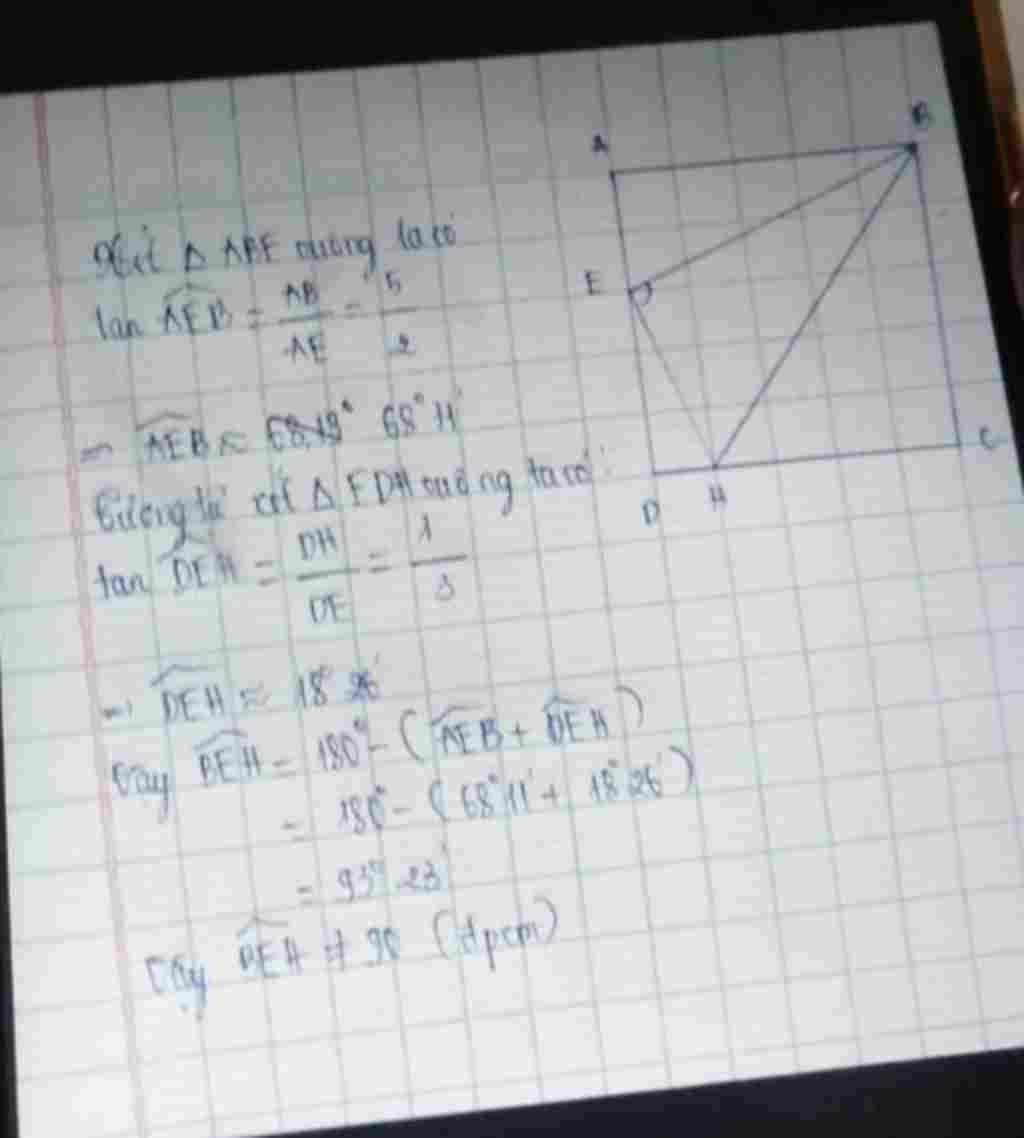 Xét Δ ABE vuông ta có
tan AEB = AB/AE = 5/2
⇒ AEB ≈ 68° 11'
Tương tự xét Δ EDH vuông ta có:
tan DEH = DH/DE = 1/3
⇒ DEH ≈ 18° 26'
Vậy BEH = 180° - (AEB + DEH)
= 180° - (68° 11' + 18° 26')
= 93° 23'
Vậy BEH ≠ 90 (đpcm)
A
B
E
C
D
H